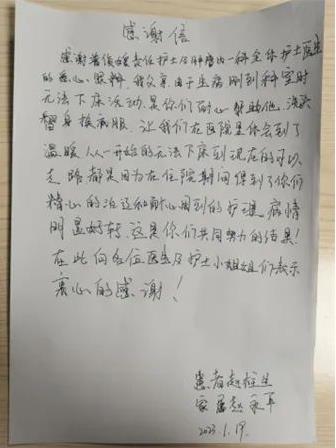 感谢信
感谢著侯媛责任护士及肿瘤内一科全体护士医生
的爱心、照料,我父亲由于生病刚到科室时
无法下床活动,是你们耐心帮助他,洗头
替身换病服,让我们在医院里体会到了
温暖,从一开始的无法下床到现在的可以
走路都是因为在住院期间得到了你们
精心的治疗和耐心周到的护理,病情
明显好转,这是你们共同努力的结果!
在此向各位医生及护士小姐姐们表示
衷心的感谢!
患者赵 生
家属赵 平
2023.1.19.